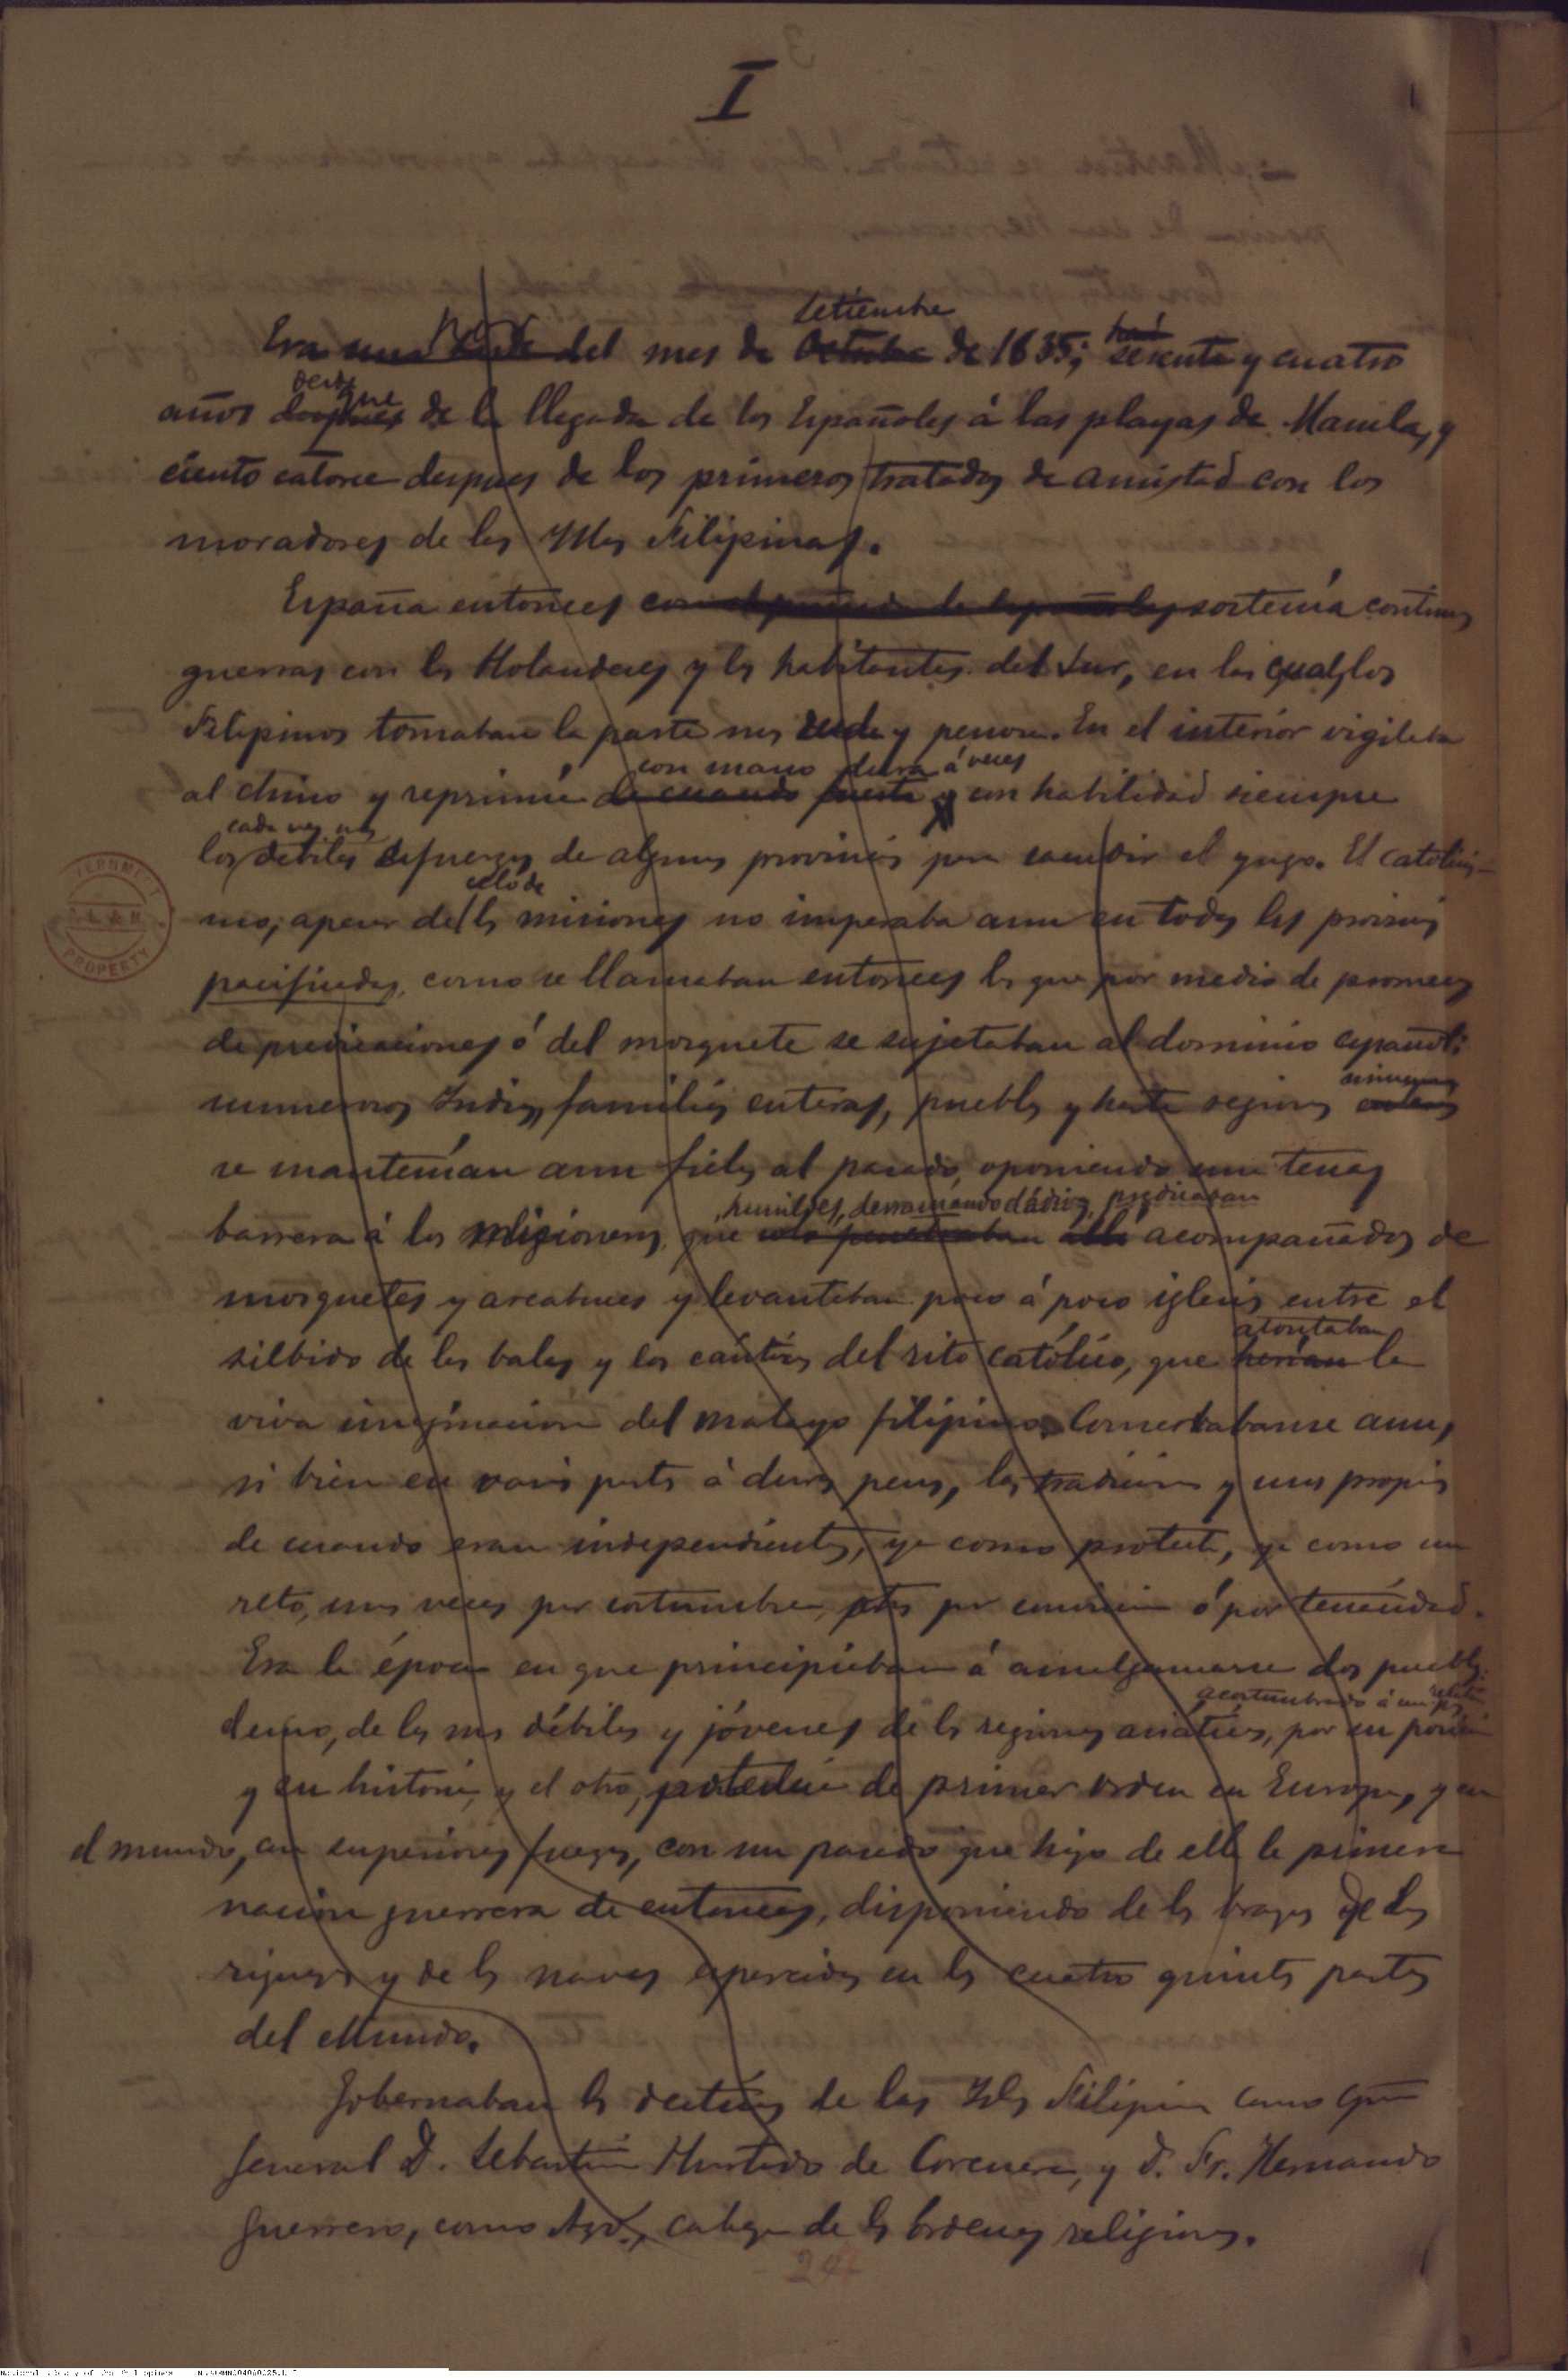 I
Era del mes de Setiembre de 1635; sesenta y cuatro
años desde que de la llegada de los Españoles á las playas de Manila, y
ciento catorce despues de los primeros tratados de amistad con los
moradores de las Yslas Filipinas.
España entonces sostenía continuas
guerras con los Holandeses y los habitantes del Sur, en las cuales los
Filipinos tomaban la parte mas ruda y penosa. En el interior vigilaba
al chino y reprimía con mano dura á veces y con habilidad siempre
los cada vez mas débiles esfuerzos de algunas provincias para sacudir el yugo. El catolicis-
mo, apesar del celo de las misiones no imperaba aun en todas las provincias
pacificadas, como se llamaban entonces las que por medio de promesas
de predicaciones ó del mosquete se sujetaban al dominio español;
numerosos Indios, familias enteras, pueblos y hasta regiones
se mantenían aun fieles al pasado, oponiendo una tenaz
barrera á los religiosos, que humildes, derramando dádivas, predicaban acompañados de
mosquetes y arcabuces y levantaban poco á poco iglesias entre el
silbido de las balas y los cánticos del rito católico, que atontaban la
viva imaginacion del malayo filipino. Conservábanse aun,
si bien en varias partes á duras penas, las tradiciones y usos propios
de cuando eran independientes, ya como protesta, ya como un
reto, unas veces por costumbre, otras por ó por tenacidad.
Era la época en que principiaban á amalgamarse dos pueblos:
de las mas débiles y jóvenes de las regiones asiáticas, acostumbrado á un por su posicion
y su historia, y el otro, potencia de primer orden en Europa, y en
el mundo, con superiores fuerzas, con un pasado que hizo de ella la primera
nación guerrera de entonces, disponiendo de los brazos de las
riquezas y de las naves esparcidas en las cuatro quintas partes
del Mundo.
Gobernaban los destinos de las Yslas Filipinas como Cpn
General D. Sebastián Hurtado de Corcuera, y D. Fr. Hernando
Guerrero, como Azo., cabeza de las órdenes religiosas.
24
GOVERNMENT
PROPERTY
National Library of the Philippines